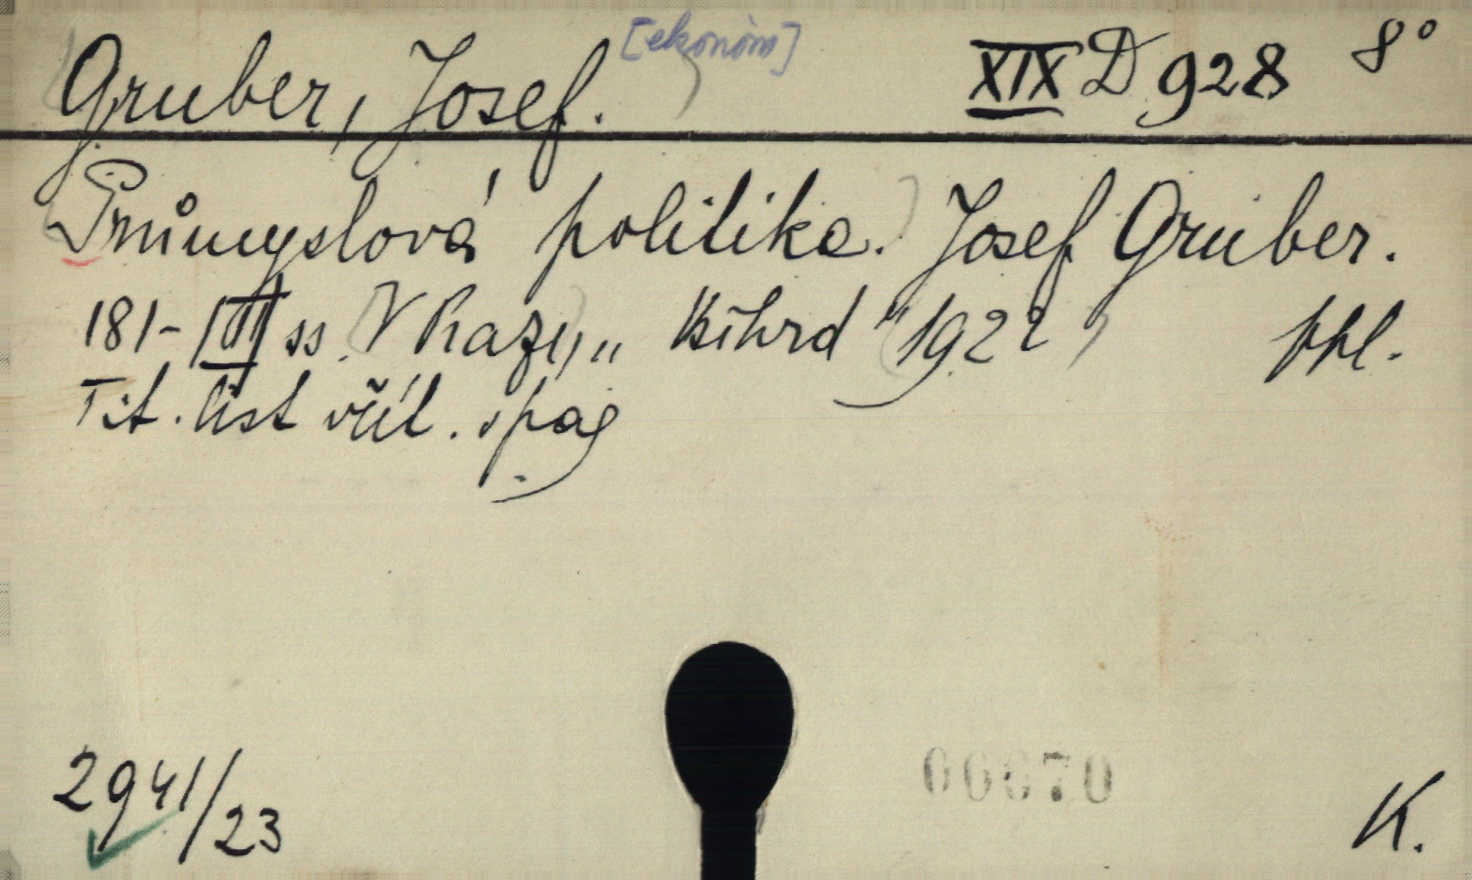 Gruber, Josef. [ekonom] XIX D 928 8°
Průmyslová politika. Josef Gruber.
181- III ss. V Praze, „ Všehrd " 1922 ppl.
Tit. list včít. v pag.
2941/23
00670
K.